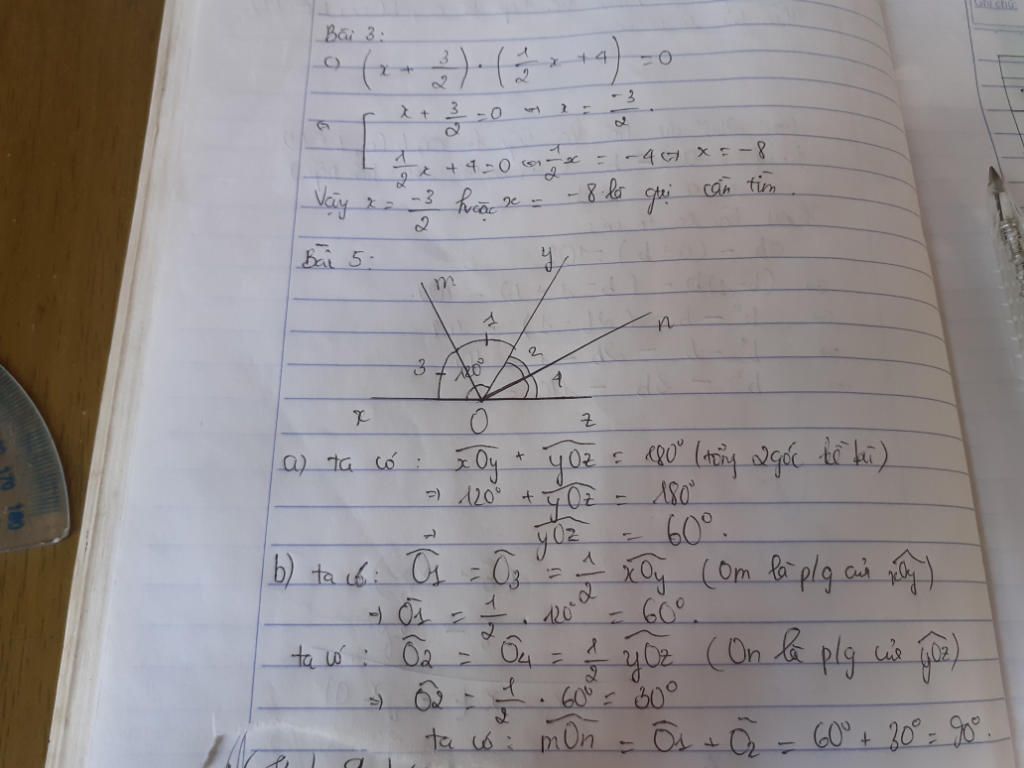 Bài 3:
c) (x + 3/2) · (1/2 x + 4) = 0
⇔ [ x + 3/2 = 0 ⇔ x = -3/2.
1/2 x + 4 = 0 ⇔ 1/2 x = -4 ⇔ x = -8
Vậy x = -3/2 hoặc x = -8 là gtrị cần tìm.
Bài 5:
m y n
3 120° 1 2 4
x O z
a) ta có: xÔy + yÔz = 180° (tổng 2 góc kề bù)
⇒ 120° + yÔz = 180°
⇒ yÔz = 60°.
b) ta có: Ô1 = Ô3 = 1/2 xÔy (Om là p/g của xÔy)
⇒ Ô1 = 1/2 · 120° = 60°.
ta có: Ô2 = Ô4 = 1/2 yÔz (On là p/g của yÔz)
⇒ Ô2 = 1/2 · 60° = 30°
ta có: mÔn = Ô1 + Ô2 = 60° + 30° = 90°.